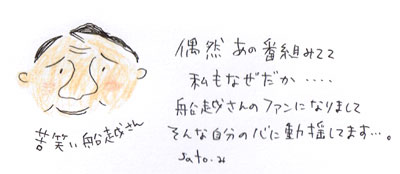 偶然あの番組みてて
私もなぜだか‥‥
船越さんのファンになりまして
そんな自分の心に動揺してます…。
苦笑い船越さん